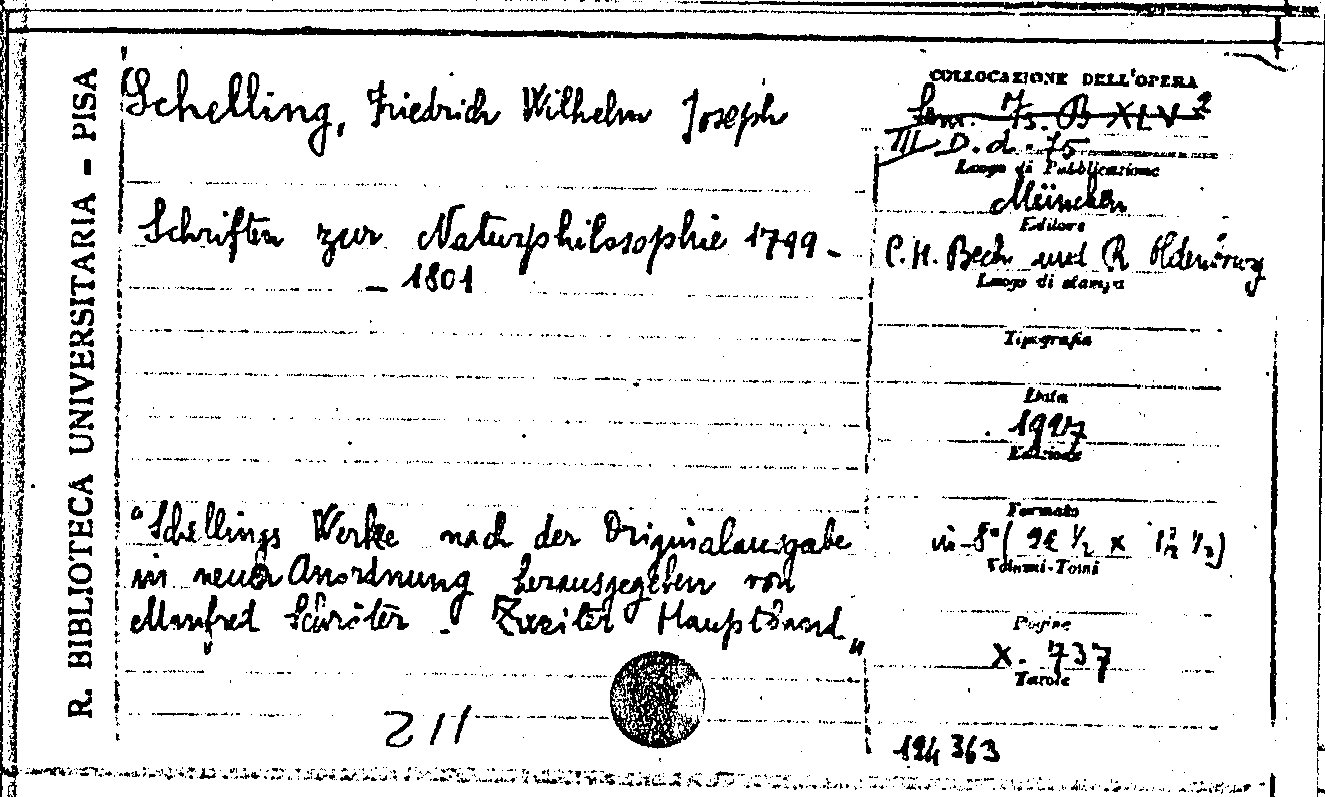 R. BIBLIOTECA UNIVERSITARIA - PISA
Schelling, Friedrich Wilhelm Joseph
Schriften zur Naturphilosophie 1799 -
- 1801
"Schellings Werke nach der Originalausgabe
in neuer Anordnung herausgegeben von
Manfred Schröter - Zweiter Hauptband"
211
COLLOCAZIONE DELL'OPERA
B XLV 2
III D. d. 75
Luogo di Pubblicazione
München
Editore
C. H. Beck und R Oldenbourg
Luogo di stampa
Tipografia
Data
1927
Edizione
Formato
in-8° ( 1/2 x 12 1/2)
Volumi-Tomi
Pagine
X. 737
Tavole
124363